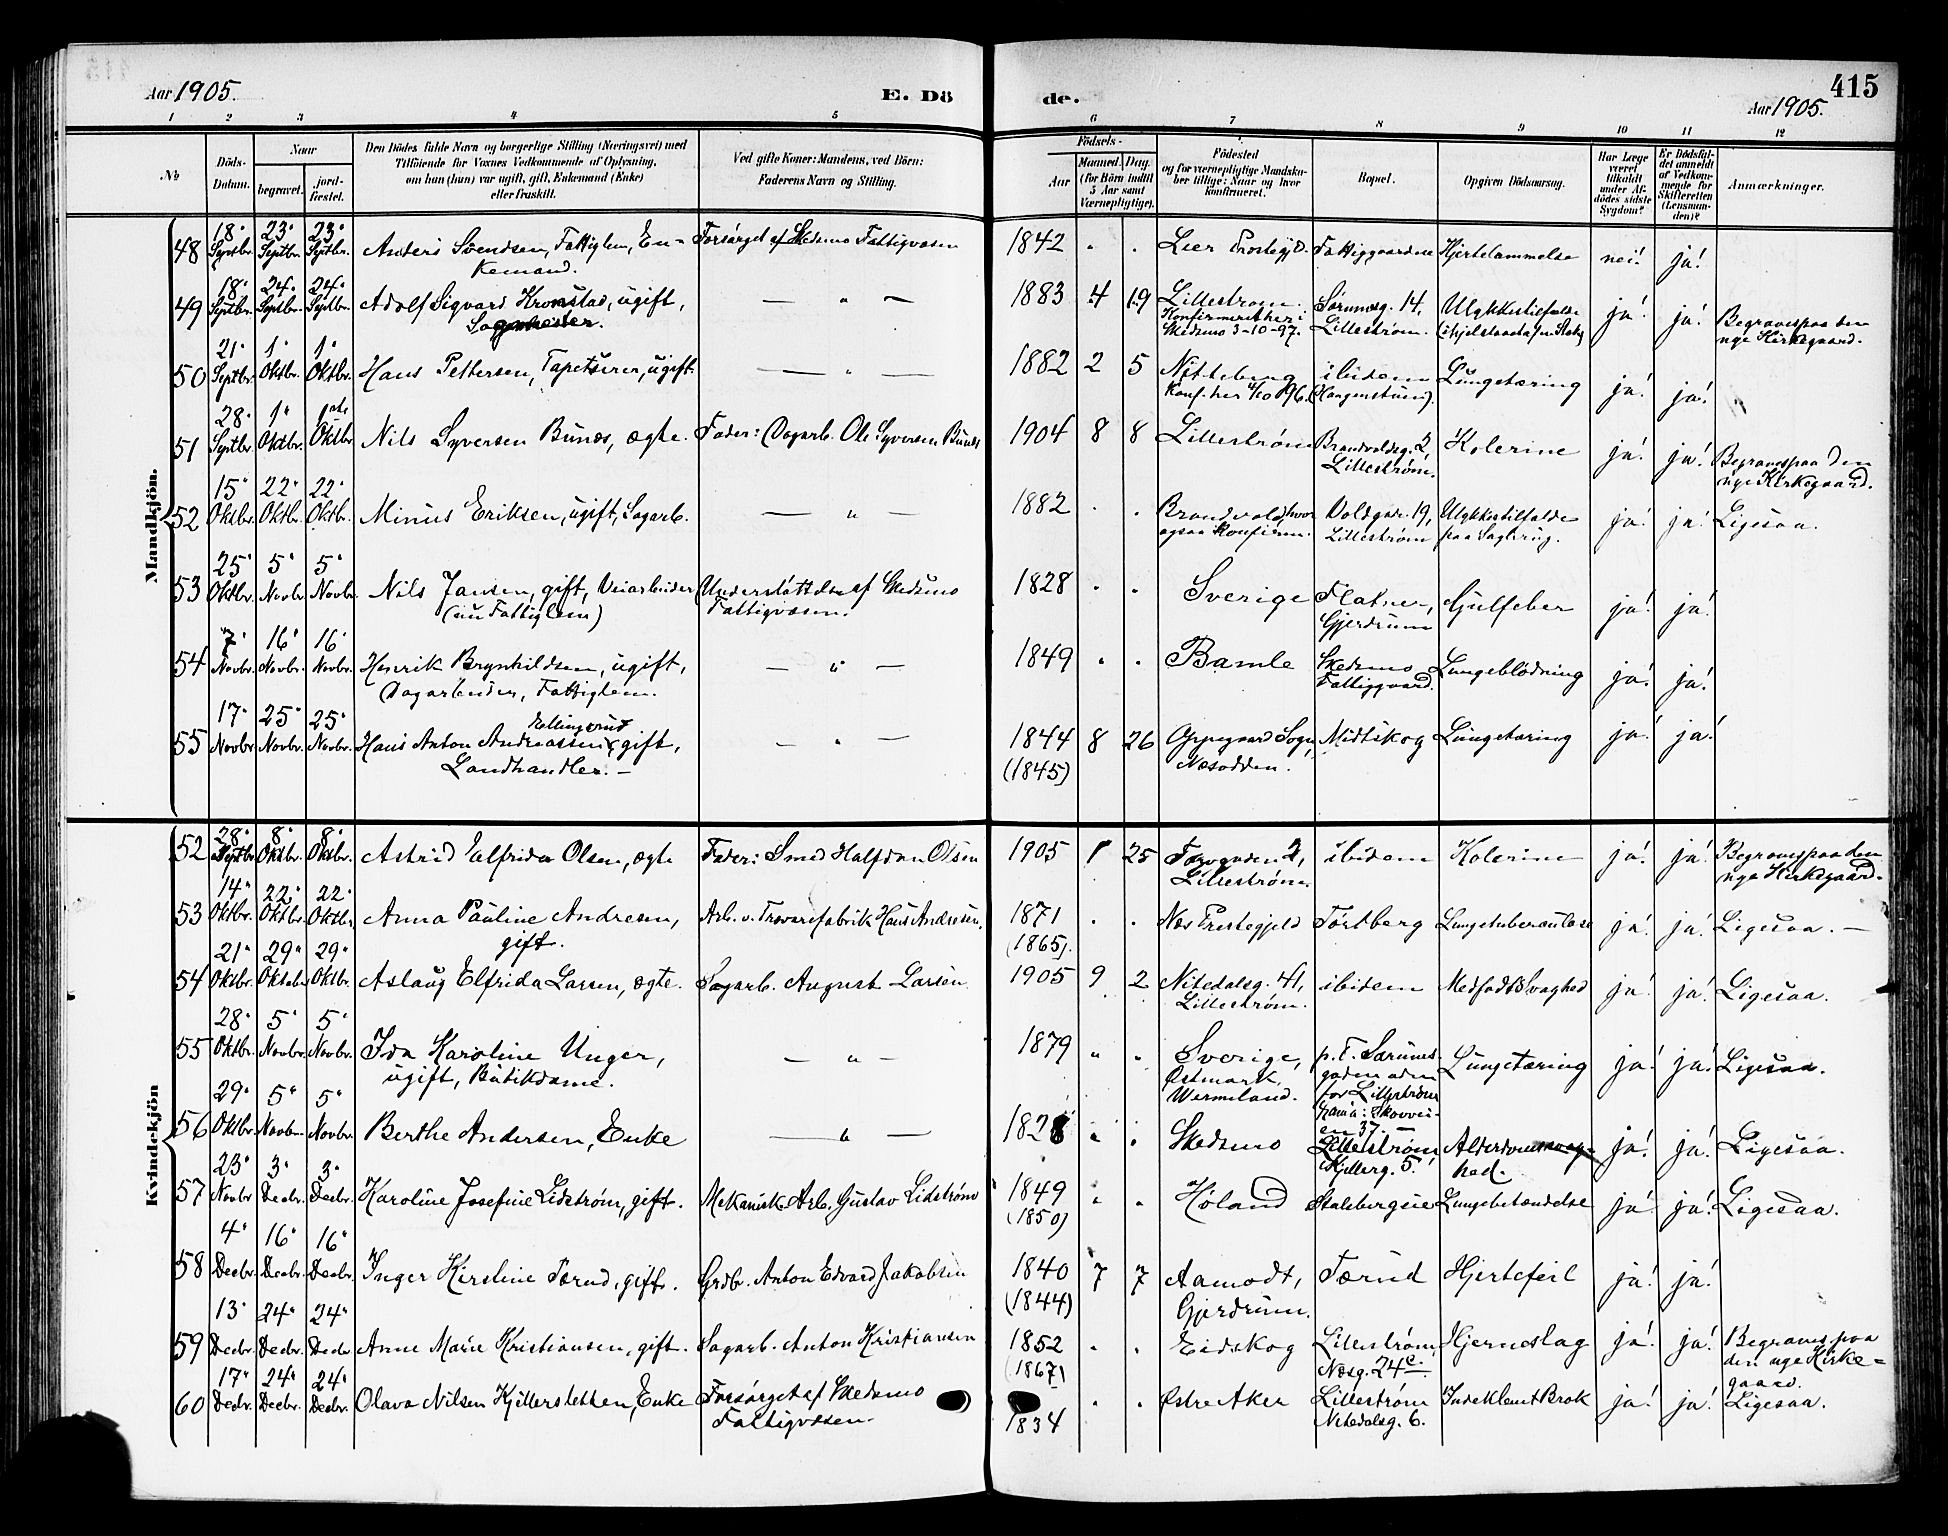 Aar 1905.
E. Dö
de.
415
Aar 1905.
1 2 3 4 5 6 7 8 9 10 11 12
No
Döds-Datum.
Naar
begravet.
jord-fæstet.
Den Dödes fulde Navn og borgerlige Stilling (Næringsvei) med
Tilföiende for Voxnes Vedkommende af Oplysning,
om hun (hun) var ugift, gift, Enkemand (Enke)
eller fraskilt.
Ved gifte Koner: Mandens, ved Börn:
Faderens Navn og Stilling.
Födsels-
Aar
Maaned. Dag.
(for Börn indtil
5 Aar samt
Værnepligtige).
Födested
og for værnepligtige Mandska-
ber tillige: Naar og hvor
konfirmeret.
Bopæl.
Opgiven Dödsaarsag.
Har Læge
været
tilkaldt
under Af-
dödes sidste
Sygdom?
Er Dödsfal-
det anmeldt
af Vedkom-
mende for
Skifteretten
(Lensman-
den)?
Anmærkninger.
Mandkjön.
48 18' Septbr. 23' Septbr. 23' Septbr. Anders Svendsen, Fattiglem, En-
kemand. Forsørget af Skedsmo Fattigvæsen 1842 " " Lier Prestegjd. Fattiggaarden Hjertelammelse nei! ja!
49 18' Septbr. 24' Septbr. 24' Septbr. Adolf Sigvard Kronstad, ugift,
— " — 1883 4 19 Lillestrøm.
Konfirmeret her i
Skedsmo 3-10-97. Sørumsg. 14,
Lillestrøm. Ulykkestilfælde
ja! ja! Begravet paa den
nye Kirkegaard.
50 21' Septbr. 1' Oktbr. 1' Oktbr. Hans Pettersen, Tapetserer, ugift. — " — 1882 2 5 Nitteberg
Konf. her 4/10 96. ibidem
Lungetæring ja! ja!
51 28' Septbr. 1' Oktbr. 1ste Oktbr. Nils Syversen Bunæs, ægte. Fader: Dagarb. Ole Syversen Bunæs 1904 8 8 Lillestrøm Brandvoldsg. 2,
Lillestrøm. Kolerine ja! ja! Begravet paa den
nye Kirkegaard.
52 15' Oktbr. 22' Oktbr. 22' Oktbr. Minus Eriksen, ugift, Sagarb. — " — 1882 " " Brandvold, hvor
ogsaa Konfirm. Voldgade. 19,
Lillestrøm Ulykkestilfælde
paa Sagbrug. ja! ja! Ligesaa.
53 25' Oktbr. 5' Novbr. 5' Novbr. Nils Jansen, gift, Veiarbeider
(nu Fattiglem) Understøttelse af Skedsmo
Fattigvæsen. 1828 " " Sverige Flatner,
Gjerdrum Gulfeber ja! ja!
54 7' Novbr. 16' Novbr. 16' Novbr. Henrik Brynhildsen, ugift,
Dagarbeider, Fattiglem. — " — 1849 " " Bamle Skedsmo
Fattiggaard. Lungeblödning ja! ja!
55 17' Novbr. 25' Novbr. 25' Novbr. Hans Anton Andreassen Ellingsrud, gift,
Landhandler. — — " — 1844
(1845) 8 26 Oppegaard Sogn,
Næsodden. Midtskog Lungetæring ja! ja!
Kvindekjön
52 28' Septbr. 8' Oktbr. 8' Oktbr. Astrid Elfrida Olsen, ægte Fader: Smed Halfdan Olsen 1905 1 25 Torvgaden 2,
Lillestrøm. ibidem Kolerine ja! ja! Begravet paa den
nye Kirkegaard.
53 14' Oktbr. 22' Oktbr. 22' Oktbr. Anna Pauline Andresen,
gift. Arb. v. Trævarefabrik Hans Andresen. 1871
(1865). " " Næs Prestegjeld Tørtberg Lungetuberculose ja! ja! Ligesaa. —
54 21' Oktbr. 29' Oktober 29' Oktbr. Aslaug Elfrida Larsen, ægte. Sagarb. August Larsen 1905 9 2 Nitedalsg. 41,
Lillestrøm. ibidem Medfødt Svaghed ja! ja! Ligesaa.
55 28' Oktbr. 5' Novbr. 5' Novbr. Ida Karoline Unger,
ugift, Butikdame. — " — 1879 " " Sverige,
Østmark,
Wermeland. p. t. Sørums-
gaden uden
for Lillestrøm
Lungetæring ja! ja! Ligesaa.
56 29' Oktbr. 5' Novbr. 5' Novbr. Berthe Andersen, Enke — " — 1828 " " Skedsmo Lillestrøm,
Kjellerg. 5. Alderdomssvag-
hed. ja! ja! Ligesaa.
57 23' Novbr 3' Decbr. 3' Decbr. Karoline Josefine Lidstrøm, gift. Mekanisk. Arb. Gustav Lidstrøm 1849
(1850) " " Høland Stalsbergeie Lungebetændelse ja ja! Ligesaa.
58 4' Decbr. 16' Decbr. 16' Decbr. Inger Kirstine Tærud, gift. Grdbr. Anton Edvard Jakobsen 1840
(1844) 7 7 Aamodt,
Gjerdrum. Tærud Hjertefeil ja! ja!
59 13' Decbr. 24' Decbr. 24' Decbr Anne Marie Kristiansen, gift. Sagarb. Anton Kristiansen 1852
(1867) " " Eidskog Lillestrøm,
Næsg. 24c. Hjerneslag ja! ja! Begravet paa
den nye Kirke-
gaard.
60 17' Decbr. 24' Decbr. 24' Decbr. Olava Nilsen Kjellersletten, Enke Forsørget af Skedsmo
Fattigvæsen. 1834 " " Østre Aker Lillestrøm
Nitedalsg. 6. Indeklemt Brok ja! ja! Ligesaa.